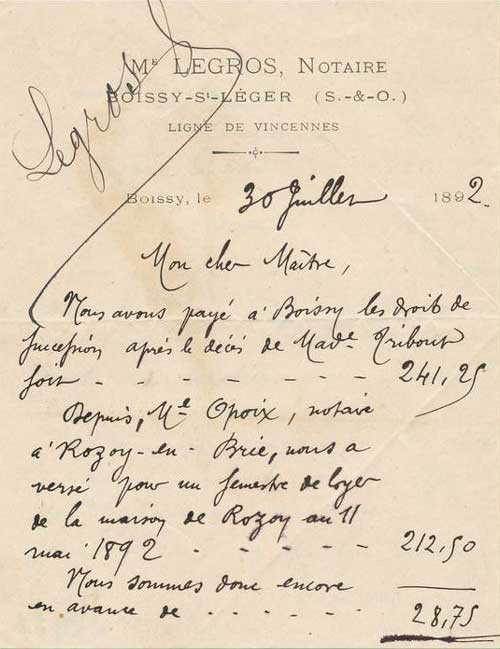 Legros
Me LEGROS, NOTAIRE
BOISSY-St-LÉGER (S.-&-O.)
LIGNE DE VINCENNES
Boissy, le 30 Juillet 1892.
Mon cher Maître,
Nous avons payé à Boissy les droit de
succession après le décès de Made Tribout
soit - - - - - - - 241,25
Depuis, Me Opoix, notaire
à Rozoy-en-Brie, nous a
versé pour un semestre de loyer
de la maison de Rozoy au 11
mai 1892 - - - - - 212,50
Nous sommes donc encore
en avance de - - - - - - 28,75